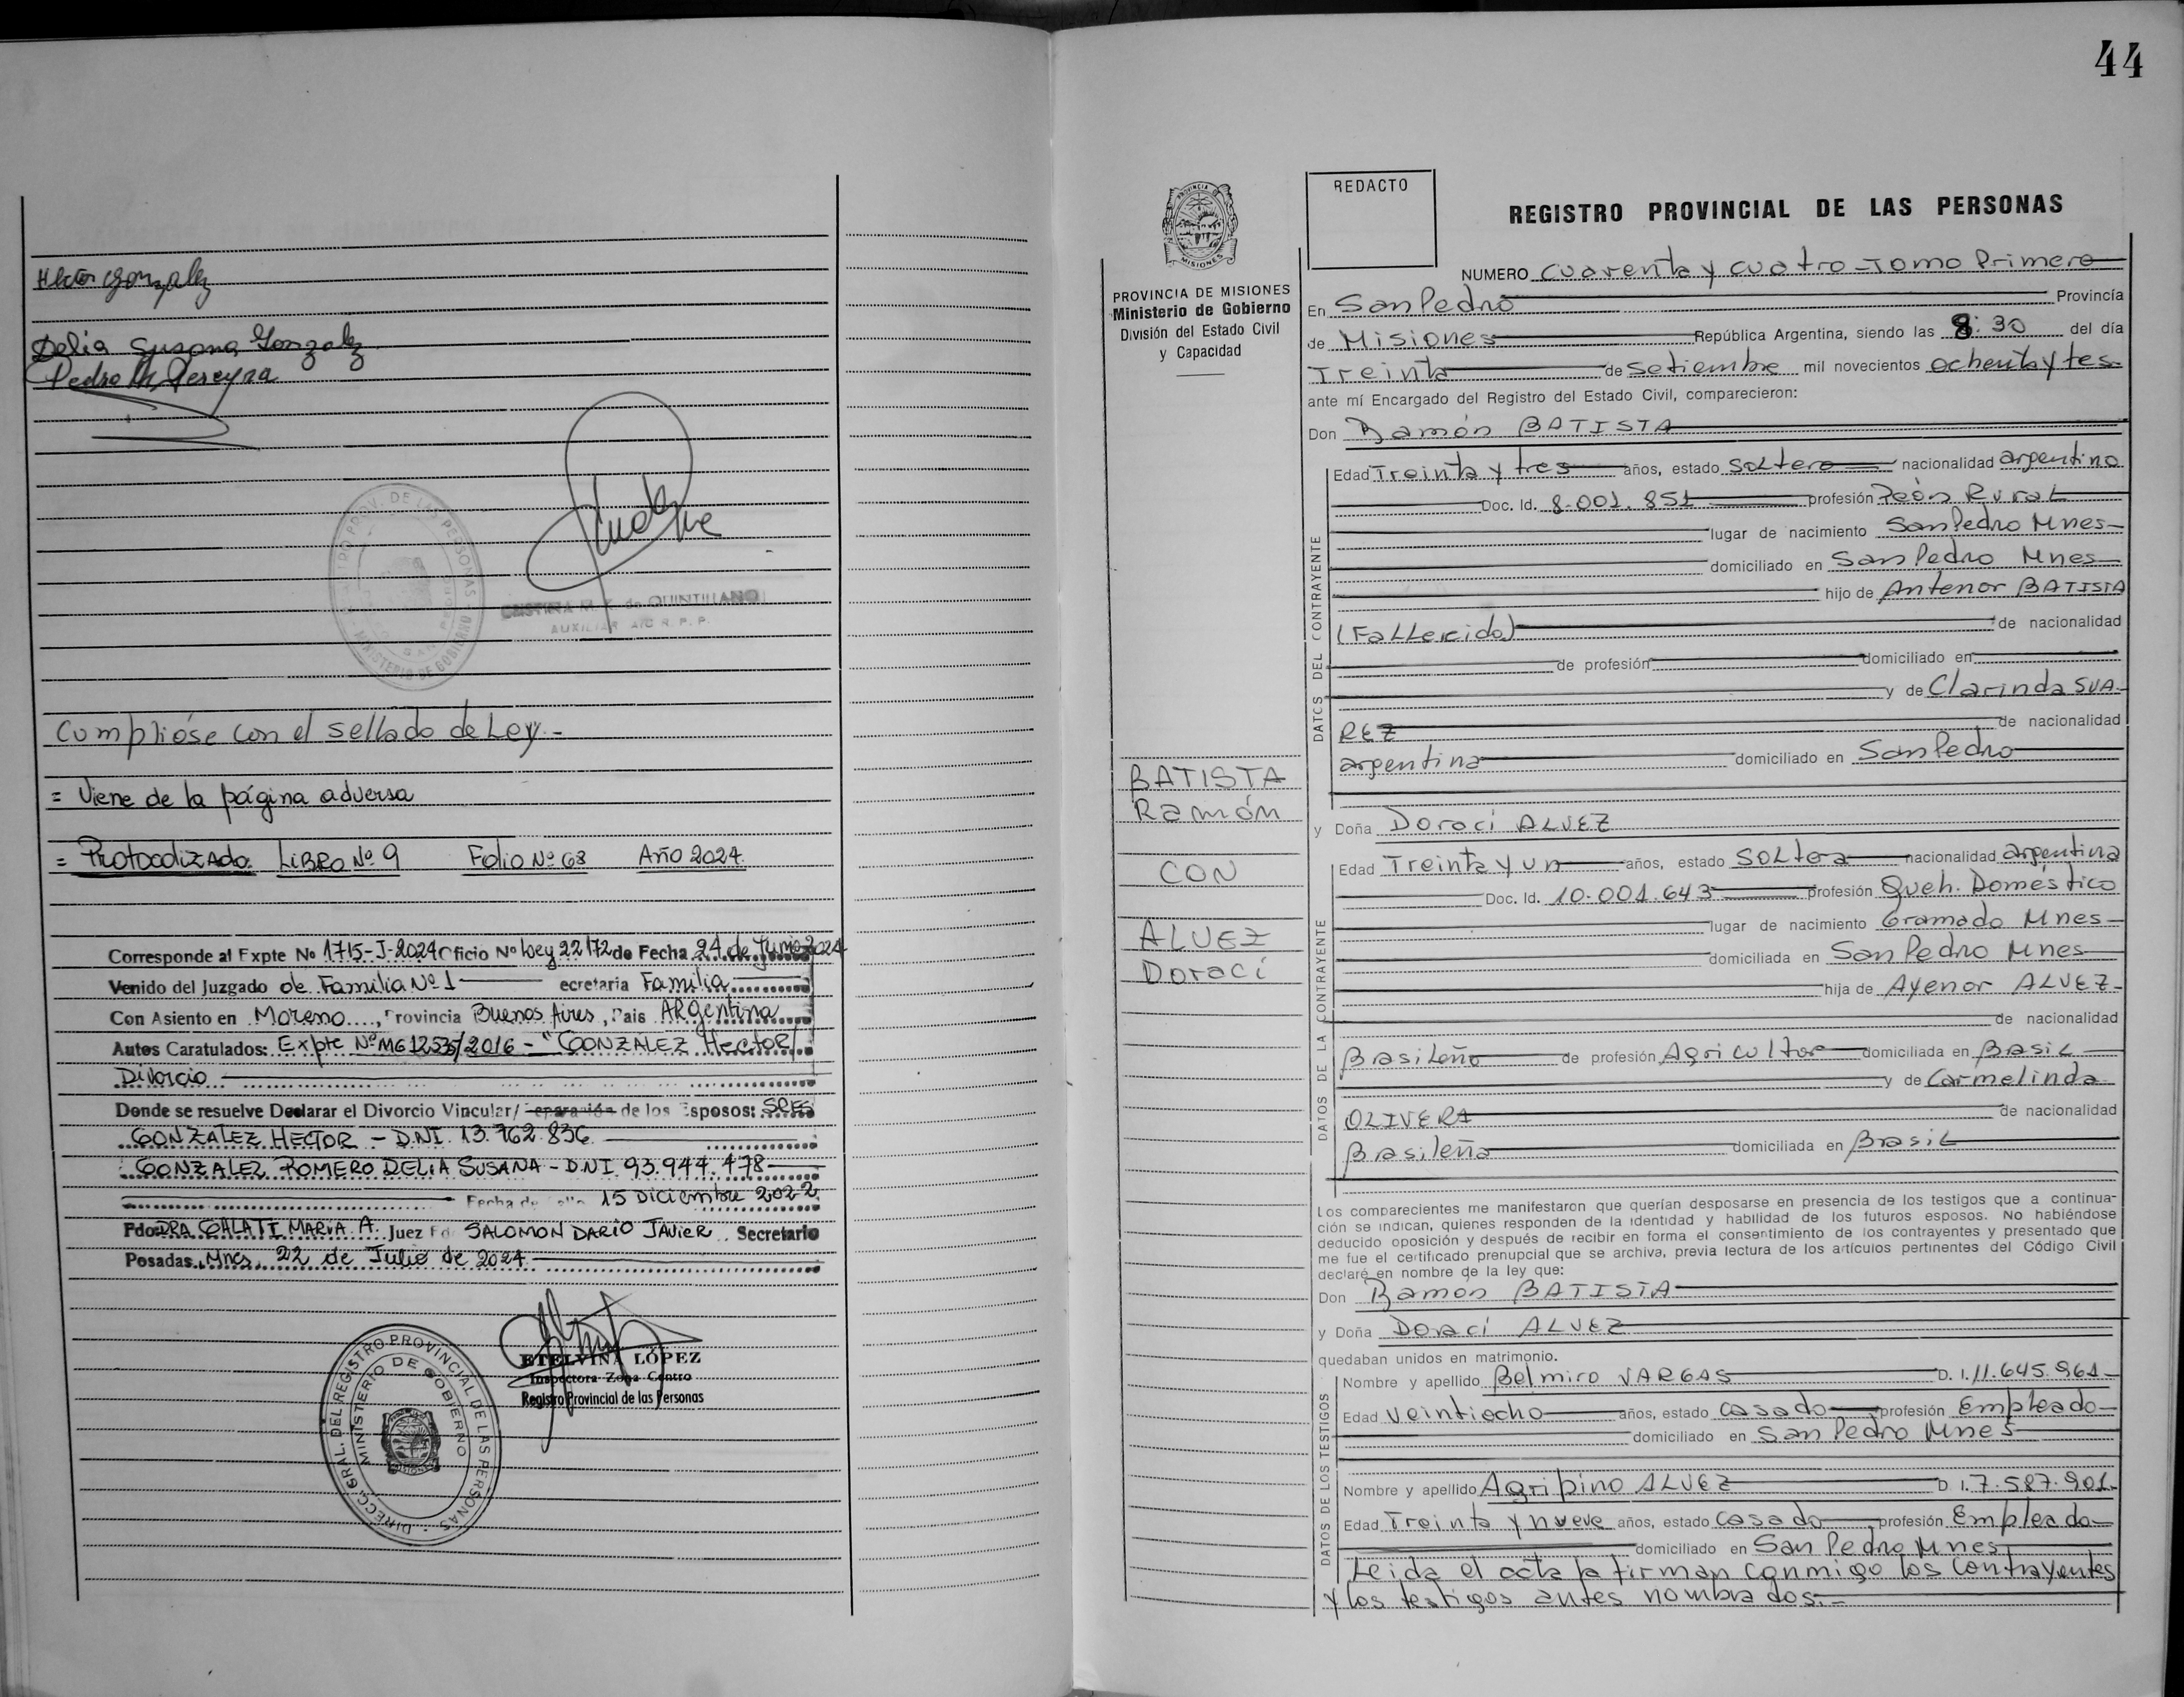 Hector Gonzalez
Delia Susana Gonzalez
Pedro M. Pereyra
CRISTINA M. de QUINTILLANO
AUXILIAR A/C R. P. P.
Cumplióse con el sellado de Ley.-
= Viene de la página adversa
= Protocolizado: LIBRO Nº 9 Folio Nº 68 Año 2024.
Corresponde al Expte No 1715-J-2024 Oficio Nº Ley 22172 de Fecha 24 de Junio 2024
Venido del Juzgado de Familia Nº 1 ecretaria Familia
Con Asiento en Moreno, Provincia Buenos Aires, Pais ARgentina
Autos Caratulados: Expte Nº MG 12535/2016 - "GONZALEZ Hector/
Divorcio
Donde se resuelve Declarar el Divorcio Vincular/ Separación de los Esposos: SRES
GONZALEZ HECTOR - D.N.I. 13.762.836
GONZALEZ ROMERO DELIA SUSANA - D.N.I 93.944.478
Fecha de 15 Diciembre 2022
Fdo: DRA. COHLATI MARIA A. Juez Fdo SALOMON DARIO JAVIER. Secretario
Posadas, Mnes, 22 de Julio de 2024
ETELVINA LÓPEZ
Inspectora Zona Centro
Registro Provincial de las Personas
DIRECC. GRAL. DEL REGISTRO PROVINCIAL DE LAS PERSONAS
MINISTERIO DE GOBIERNO
44
PROVINCIA DE MISIONES
Ministerio de Gobierno
División del Estado Civil
y Capacidad
BATISTA
Ramón
CON
ALVEZ
Dorací
REDACTO
REGISTRO PROVINCIAL DE LAS PERSONAS
NUMERO cuarenta y cuatro - Tomo Primero
En San Pedro Provincia
de Misiones República Argentina, siendo las 8:30 del día
Treinta de Setiembre mil novecientos ochenta y tes
ante mí Encargado del Registro del Estado Civil, comparecieron:
Don Ramón BATISTA
DATOS DEL CONTRAYENTE
Edad Treinta y tres años, estado soltero nacionalidad argentino
Doc. Id. 8.001.851 profesión Peón Rural
lugar de nacimiento San Pedro Mnes
domiciliado en San Pedro Mnes
hijo de Antenor BATISTA
(Fallecido) de nacionalidad
de profesión domiciliado en
y de Clarinda SUA-
REZ de nacionalidad
argentina domiciliado en San Pedro
y Doña Doraci ALVEZ
DATOS DE LA CONTRAYENTE
Edad Treinta y un años, estado soltera nacionalidad argentina
Doc. Id. 10.001.643 profesión Queh. Doméstico
lugar de nacimiento Gramado Mnes
domiciliada en San Pedro Mnes
hija de Ayenor ALVEZ
de nacionalidad
Brasileño de profesión Agricultor domiciliada en Brasil
y de Carmelinda
OLIVERA de nacionalidad
Brasileña domiciliada en Brasil
Los comparecientes me manifestaron que querían desposarse en presencia de los testigos que a continua-
ción se indican, quienes responden de la identidad y habilidad de los futuros esposos. No habiéndose
deducido oposición y después de recibir en forma el consentimiento de los contrayentes y presentado que
me fue el certificado prenupcial que se archiva, previa lectura de los artículos pertinentes del Código Civil
declaré en nombre de la ley que:
Don Ramón BATISTA
y Doña Doraci ALVEZ
quedaban unidos en matrimonio.
DATOS DE LOS TESTIGOS
Nombre y apellido Belmiro VARGAS D. I. 11.645.961
Edad veintiocho años, estado casado profesión Empleado
domiciliado en San Pedro Mnes
Nombre y apellido Agripino ALVEZ D I. 7.587.901
Edad Treinta y nueve años, estado casado profesión Empleado
domiciliado en San Pedro Mnes
Leida el acta la firman conmigo los contrayentes
y los testigos antes nombrados.-